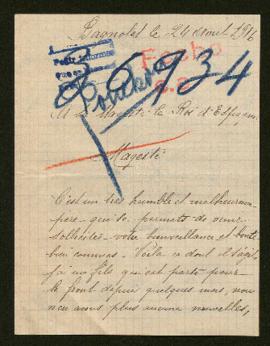 Bagnolet le 24 aout 1916
Pedir informes
Fecho
5934
A Sa Majesté le Roi d'Espagne
Magesté
C'est un tres humble et malheureux
pere qui se permets de venir
solliciter votre bienveillance et bonté
bien connues. Voila ce dont il s'agit,
j'ai un fils qui est parti pour
le front depuis quelques mois, nous
n'en avons plus aucune nouvelles,